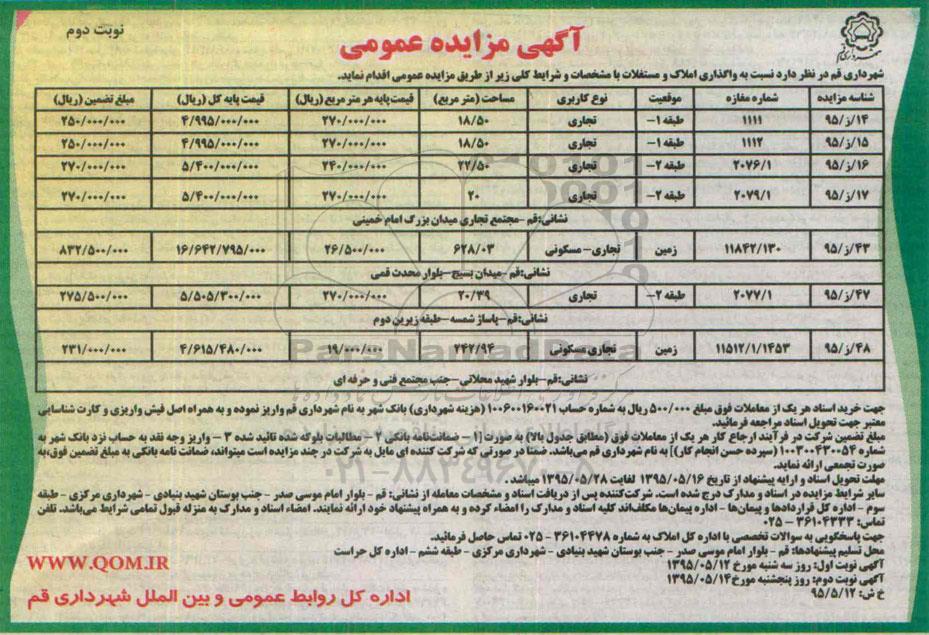 نوبت دوم
آگهی مزایده عمومی
شهرداری قم
شهرداری قم در نظر دارد نسبت به واگذاری املاک و مستغلات با مشخصات و شرایط کلی زیر از طریق مزایده عمومی اقدام نماید.
شناسه مزایده | شماره مغازه | موقعیت | نوع کاربری | مساحت (متر مربع) | قیمت پایه هر متر مربع (ریال) | قیمت پایه کل (ریال) | مبلغ تضمین (ریال)
۹۵/ز/۱۴ | ۱۱۱۱ | طبقه ۱- | تجاری | ۱۸/۵۰ | ۲۷۰/۰۰۰/۰۰۰ | ۴/۹۹۵/۰۰۰/۰۰۰ | ۲۵۰/۰۰۰/۰۰۰
۹۵/ز/۱۵ | ۱۱۱۲ | طبقه ۱- | تجاری | ۱۸/۵۰ | ۲۷۰/۰۰۰/۰۰۰ | ۴/۹۹۵/۰۰۰/۰۰۰ | ۲۵۰/۰۰۰/۰۰۰
۹۵/ز/۱۶ | ۲۰۷۶/۱ | طبقه ۲- | تجاری | ۲۲/۵۰ | ۲۴۰/۰۰۰/۰۰۰ | ۵/۴۰۰/۰۰۰/۰۰۰ | ۲۷۰/۰۰۰/۰۰۰
۹۵/ز/۱۷ | ۲۰۷۹/۱ | طبقه ۲- | تجاری | ۲۰ | ۲۷۰/۰۰۰/۰۰۰ | ۵/۴۰۰/۰۰۰/۰۰۰ | ۲۷۰/۰۰۰/۰۰۰
نشانی:قم -مجتمع تجاری میدان بزرگ امام خمینی
۹۵/ز/۴۳ | ۱۱۸۴۲/۱۳۰ | زمین | تجاری- مسکونی | ۶۲۸/۰۳ | ۲۶/۵۰۰/۰۰۰ | ۱۶/۶۴۲/۷۹۵/۰۰۰ | ۸۳۲/۵۰۰/۰۰۰
نشانی:قم -میدان بسیج-بلوار محدث قمی
۹۵/ز/۴۷ | ۲۰۷۷/۱ | طبقه ۲- | تجاری | ۲۰/۳۹ | ۲۷۰/۰۰۰/۰۰۰ | ۵/۵۰۵/۳۰۰/۰۰۰ | ۲۷۵/۵۰۰/۰۰۰
نشانی:قم-پاساژ شمسه-طبقه زیرین دوم
۹۵/ز/۴۸ | ۱۱۵۱۲/۱/۱۴۵۳ | زمین | تجاری مسکونی | ۲۴۲/۹۴ | ۱۹/۰۰۰/۰۰۰ | ۴/۶۱۵/۴۸۰/۰۰۰ | ۲۳۱/۰۰۰/۰۰۰
نشانی:قم-بلوار شهید محلاتی-جنب مجتمع فنی و حرفه ای
جهت خرید اسناد هر یک از معاملات فوق مبلغ ۵۰۰/۰۰۰ ریال به شماره حساب ۱۰۰۶۰۰۱۶۰۰۲۱ (هزینه شهرداری) بانک شهر به نام شهرداری قم واریز نموده و به همراه اصل فیش واریزی و کارت شناسایی
معتبر جهت تحویل اسناد مراجعه فرمائید.
مبلغ تضمین شرکت در فرآیند ارجاع کار هر یک از معاملات فوق (مطابق جدول بالا) به صورت [۱ – ضمانت‌نامه بانکی ۲ – مطالبات بلوکه شده تائید شده ۳ – واریز وجه نقد به حساب نزد بانک شهر به
شماره ۱۰۰۳۰۰۴۳۰۰۵۴ (سپرده حسن انجام کار)] به نام شهرداری قم می‌باشد. ضمناً در صورتی که شرکت کننده ای مایل به شرکت در چند مزایده است میتواند، ضمانت نامه بانکی به مبلغ تضمین فوق،به
صورت تجمعی ارائه نماید.
مهلت تحویل اسناد و ارایه پیشنهاد از تاریخ ۱۳۹۵/۰۵/۱۶ لغایت ۱۳۹۵/۰۵/۲۸ میباشد.
سایر شرایط مزایده در اسناد و مدارک درج شده است. شرکت‌کننده پس از دریافت اسناد و مشخصات معامله از نشانی: قم - بلوار امام موسی صدر - جنب بوستان شهید بنیادی - شهرداری مرکزی - طبقه
سوم - اداره کل قراردادها و پیمان‌ها - اداره پیمان‌ها مکلف‌اند کلیه اسناد و مدارک را امضاء کرده و به همراه پیشنهاد خود ارائه نمایند. امضاء اسناد و مدارک به منزله قبول تمامی شرایط می‌باشد. تلفن
تماس: ۳۶۱۰۴۳۳۳ – ۰۲۵
جهت پاسخگویی به سوالات تخصصی با اداره کل املاک به شماره ۳۶۱۰۴۴۷۸ - ۰۲۵ تماس حاصل فرمائید.
محل تسلیم پیشنهادها: قم - بلوار امام موسی صدر - جنب بوستان شهید بنیادی - شهرداری مرکزی - طبقه ششم - اداره کل حراست
آگهی نوبت اول: روز سه شنبه مورخ ۱۳۹۵/۰۵/۱۲
آگهی نوبت دوم: روز پنجشنبه مورخ ۱۳۹۵/۰۵/۱۴
خ ش: ۹۵/۵/۱۲
WWW.QOM.IR
اداره کل روابط عمومی و بین الملل شهرداری قم
ParsNamadData
۰۲۱-۸۸۳۴۹۶۷۰-۵